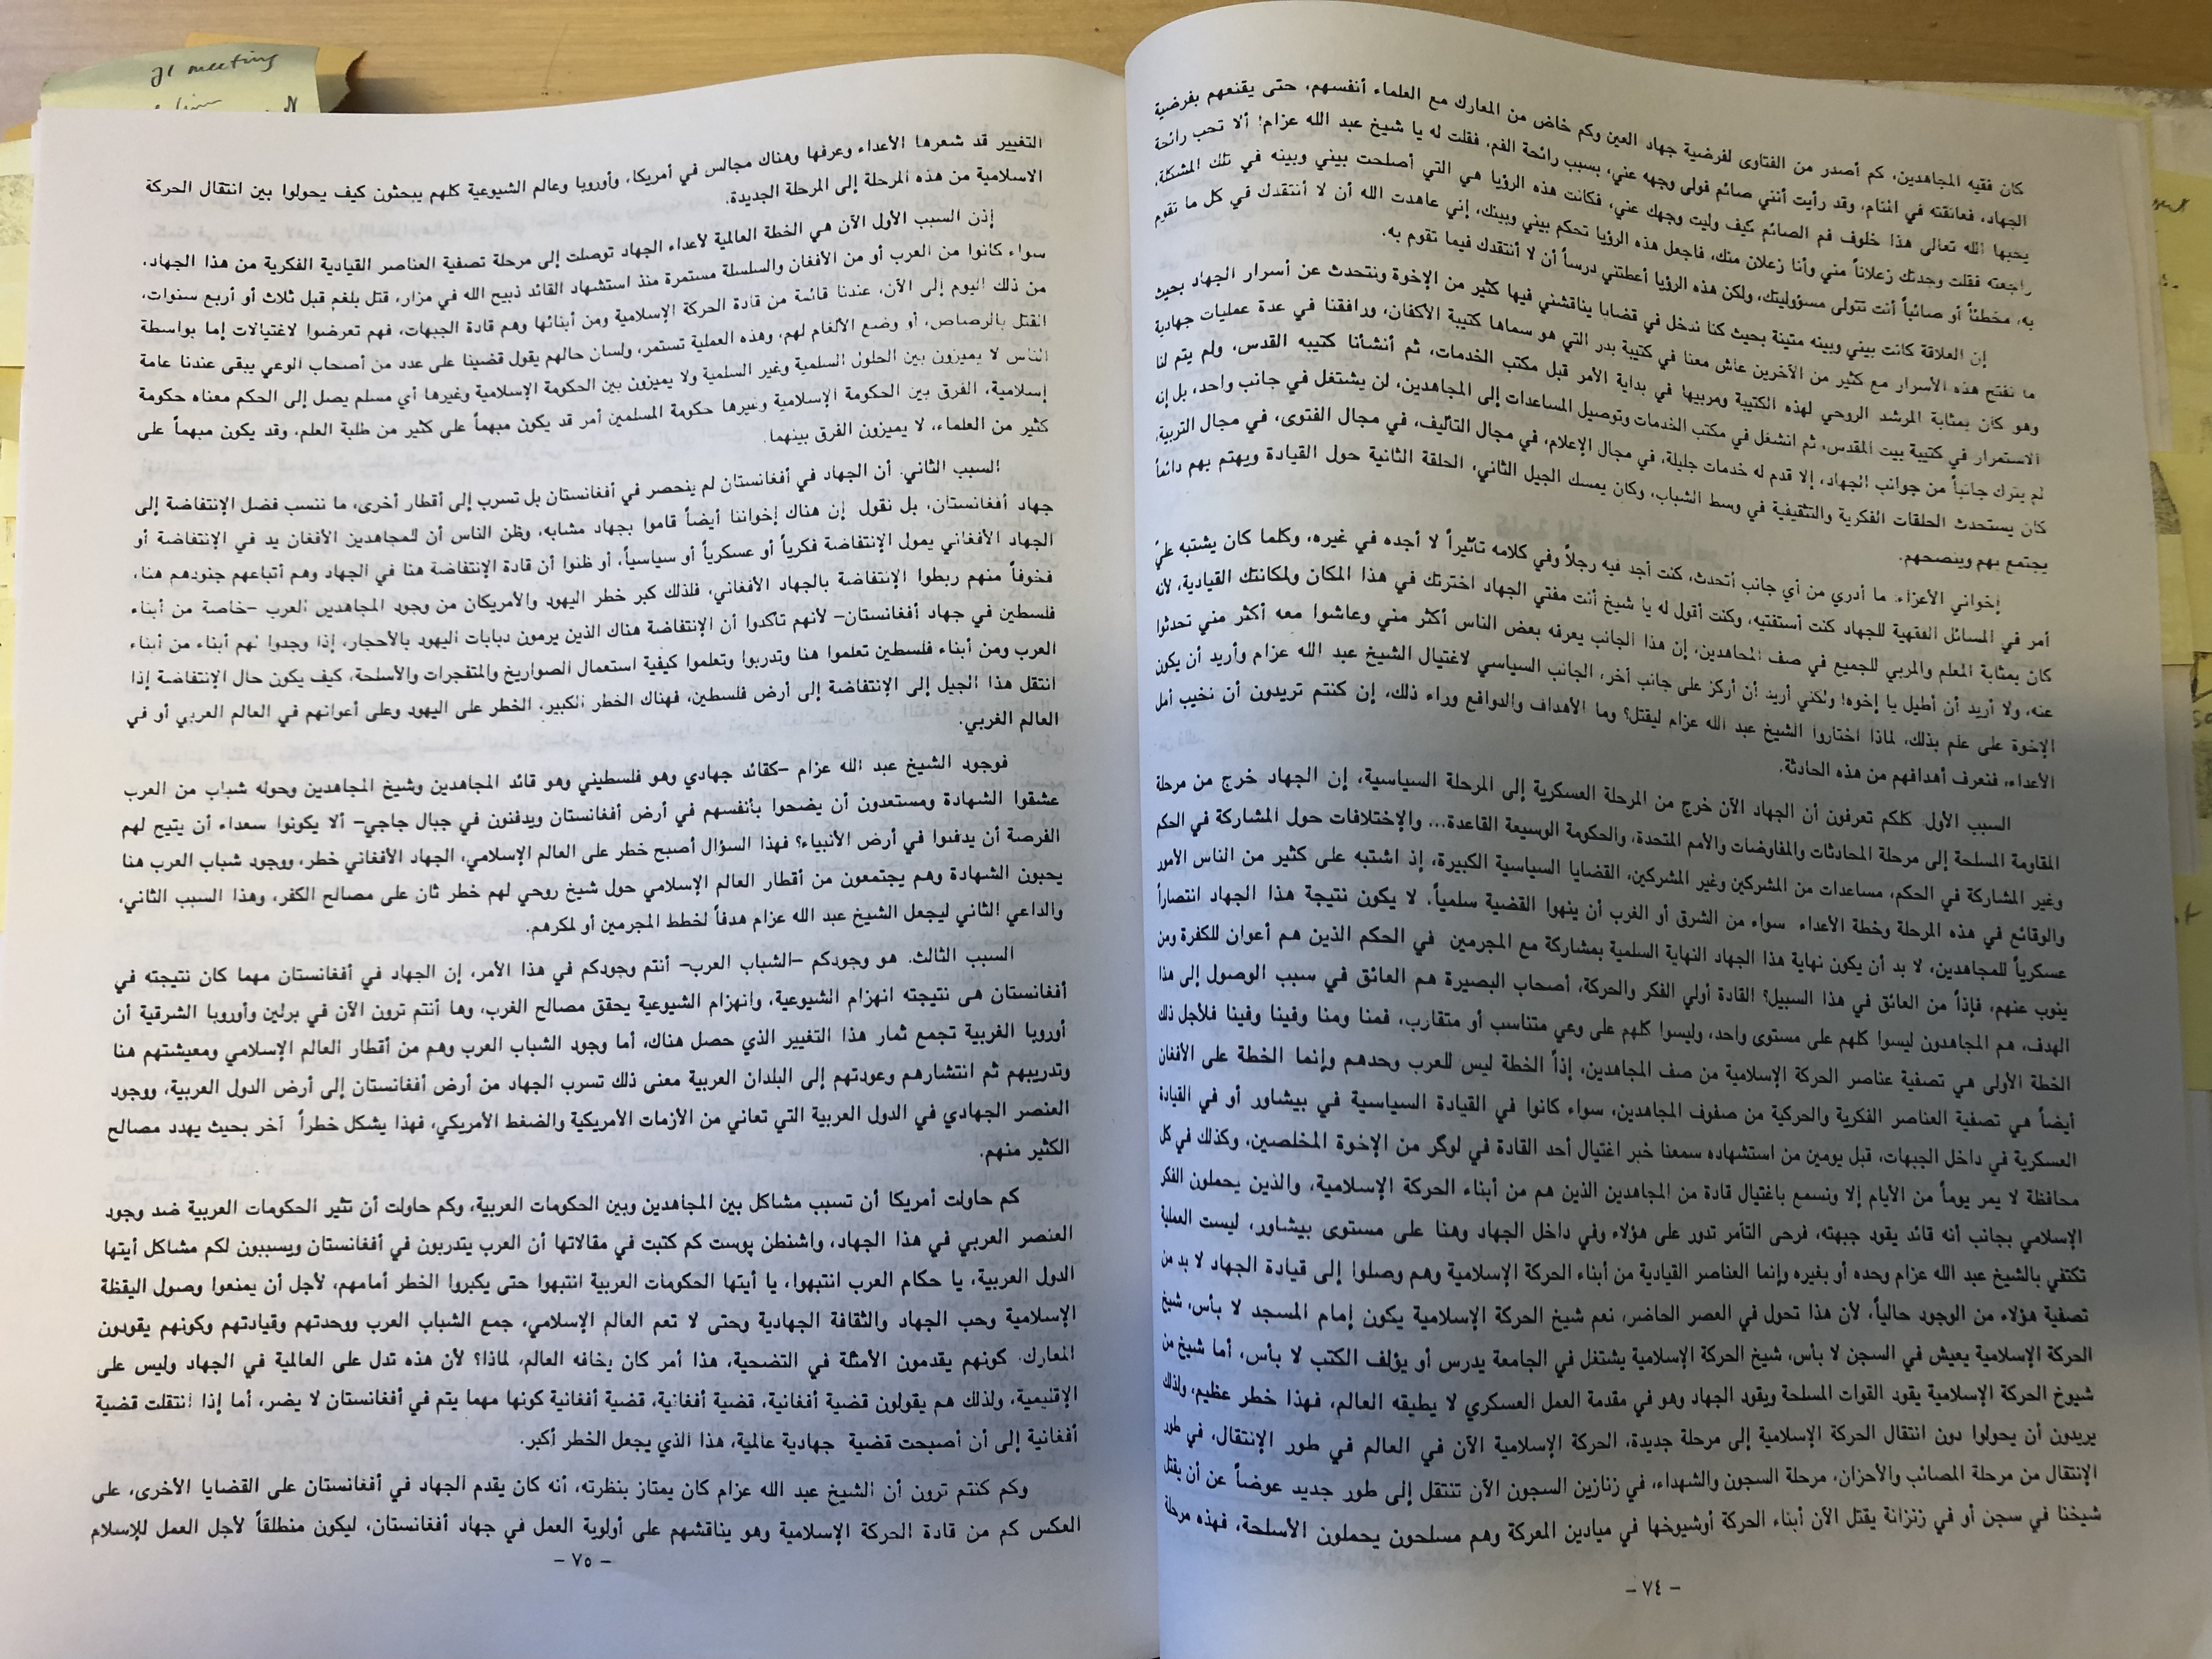 كان فقيه المجاهدين، كم أصدر من الفتاوى لفرضية جهاد العين وكم خاض من المعارك مع العلماء أنفسهم، حتى يقنعهم بفرضية
الجهاد، فعانقته في المنام، وقد رأيت أنني صائم فولى وجهه عني، بسبب رائحة الفم، فقلت له يا شيخ عبد الله عزام! ألا تحب رائحة
يحبها الله تعالى هذا خلوف فم الصائم كيف وليت وجهك عني، فكانت هذه الرؤيا هي التي أصلحت بيني وبينه في تلك المشكلة،
راجعته فقلت وجدتك زعلاناً مني وأنا زعلان منك، فاجعل هذه الرؤيا تحكم بيني وبينك، إني عاهدت الله أن لا أنتقدك في كل ما تقوم
به، مخطئاً أو صائباً أنت تتولى مسؤوليتك، ولكن هذه الرؤيا أعطتني درساً أن لا أنتقدك فيما تقوم به.
إن العلاقة كانت بيني وبينه متينة بحيث كنا ندخل في قضايا يناقشني فيها كثير من الإخوة ونتحدث عن أسرار الجهاد بحيث
ما نفتح هذه الأسرار مع كثير من الآخرين عاش معنا في كتيبة بدر التي هو سماها كتيبة الأكفان، ورافقنا في عدة عمليات جهادية
وهو كان بمثابة المرشد الروحي لهذه الكتيبة ومربيها في بداية الأمر قبل مكتب الخدمات، ثم أنشأنا كتيبه القدس، ولم يتم لنا
الاستمرار في كتيبة بيت المقدس، ثم انشغل في مكتب الخدمات وتوصيل المساعدات إلى المجاهدين، لن يشتغل في جانب واحد، بل إنه
لم يترك جانباً من جوانب الجهاد، إلا قدم له خدمات جليلة، في مجال الإعلام، في مجال التأليف، في مجال الفتوى، في مجال التربية،
كان يستحدث الحلقات الفكرية والتثقيفية في وسط الشباب، وكان يمسك الجيل الثاني، الحلقة الثانية حول القيادة ويهتم بهم دائماً
يجتمع بهم وينصحهم.
إخواني الأعزاء: ما أدري من أي جانب أتحدث، كنت أجد فيه رجلاً وفي كلامه تأثيراً لا أجده في غيره، وكلما كان يشتبه عليّ
أمر في المسائل الفقهية للجهاد كنت أستفتيه، وكنت أقول له يا شيخ أنت مفتي الجهاد اخترتك في هذا المكان ولمكانتك القيادية، لأنه
كان بمثابة المعلم والمربي للجميع في صف المجاهدين، إن هذا الجانب يعرفه بعض الناس أكثر مني وعاشوا معه أكثر مني تحدثوا
عنه، ولا أريد أن أطيل يا إخوه! ولكني أريد أن أركز على جانب أخر، الجانب السياسي لاغتيال الشيخ عبد الله عزام وأريد أن يكون
الإخوة على علم بذلك، لماذا اختاروا الشيخ عبد الله عزام ليقتل؟ وما الأهداف والدوافع وراء ذلك، إن كنتم تريدون أن نخيب أمل
الأعداء، فنعرف أهدافهم من هذه الحادثة.
السبب الأول: كلكم تعرفون أن الجهاد الآن خرج من المرحلة العسكرية إلى المرحلة السياسية، إن الجهاد خرج من مرحلة
المقاومة المسلحة إلى مرحلة المحادثات والمفاوضات والأمم المتحدة، والحكومة الوسيعة القاعدة... والإختلافات حول المشاركة في الحكم
وغير المشاركة في الحكم، مساعدات من المشركين وغير المشركين، القضايا السياسية الكبيرة، إذ اشتبه على كثير من الناس الأمور
والوقائع في هذه المرحلة وخطة الأعداء سواء من الشرق أو الغرب أن ينهوا القضية سلمياً. لا يكون نتيجة هذا الجهاد انتصاراً
عسكرياً للمجاهدين، لا بد أن يكون نهاية هذا الجهاد النهاية السلمية بمشاركة مع المجرمين في الحكم الذين هم أعوان للكفرة ومن
ينوب عنهم، فإذاً من العائق في هذا السبيل؟ القادة أولي الفكر والحركة، أصحاب البصيرة هم العائق في سبب الوصول إلى هذا
الهدف، هم المجاهدون ليسوا كلهم على مستوى واحد، وليسوا كلهم على وعي متناسب أو متقارب، فمنا ومنا وفينا وفينا فلأجل ذلك
الخطة الأولى هي تصفية عناصر الحركة الإسلامية من صف المجاهدين، إذاً الخطة ليس للعرب وحدهم وإنما الخطة على الأفغان
أيضاً هي تصفية العناصر الفكرية والحركية من صفوف المجاهدين، سواء كانوا في القيادة السياسية في بيشاور أو في القيادة
العسكرية في داخل الجبهات، قبل يومين من استشهاده سمعنا خبر اغتيال أحد القادة في لوگر من الإخوة المخلصين، وكذلك في كل
محافظة لا يمر يوماً من الأيام إلا ونسمع باغتيال قادة من المجاهدين الذين هم من أبناء الحركة الإسلامية، والذين يحملون الفكر
الإسلامي بجانب أنه قائد يقود جبهته، فرحى التآمر تدور على هؤلاء وفي داخل الجهاد وهنا على مستوى بيشاور، ليست العملية
تكتفي بالشيخ عبد الله عزام وحده أو بغيره وإنما العناصر القيادية من أبناء الحركة الإسلامية وهم وصلوا إلى قيادة الجهاد لا بد من
تصفية هؤلاء من الوجود حالياً، لأن هذا تحول في العصر الحاضر، نعم شيخ الحركة الإسلامية يكون إمام المسجد لا بأس، شيخ
الحركة الإسلامية يعيش في السجن لا بأس، شيخ الحركة الإسلامية يشتغل في الجامعة يدرس أو يؤلف الكتب لا بأس، أما شيخ من
شيوخ الحركة الإسلامية يقود القوات المسلحة ويقود الجهاد وهو في مقدمة العمل العسكري لا يطيقه العالم، فهذا خطر عظيم، ولذلك
يريدون أن يحولوا دون انتقال الحركة الإسلامية إلى مرحلة جديدة، الحركة الإسلامية الآن في العالم في طور الإنتقال، في طور
الإنتقال من مرحلة المصائب والأحزان، مرحلة السجون والشهداء، في زنازين السجون الآن تنتقل إلى طور جديد عوضاً عن أن يقتل
شيخنا في سجن أو في زنزانة يقتل الآن أبناء الحركة أوشيوخها في ميادين المعركة وهم مسلحون يحملون الأسلحة، فهذه مرحلة
- ٧٤ -
التغيير قد شعرها الأعداء وعرفها وهناك مجالس في أمريكا، وأوروبا وعالم الشيوعية كلهم يبحثون كيف يحولوا بين انتقال الحركة
الاسلامية من هذه المرحلة إلى المرحلة الجديدة.
إذن السبب الأول الآن هي الخطة العالمية لأعداء الجهاد توصلت إلى مرحلة تصفية العناصر القيادية الفكرية من هذا الجهاد،
سواء كانوا من العرب أو من الأفغان والسلسلة مستمرة منذ استشهاد القائد ذبيح الله في مزار، قتل بلغم قبل ثلاث أو أربع سنوات،
من ذلك اليوم إلى الآن، عندنا قائمة من قادة الحركة الإسلامية ومن أبنائها وهم قادة الجبهات، فهم تعرضوا لاغتيالات إما بواسطة
القتل بالرصاص، أو وضع الألغام لهم، وهذه العملية تستمر، ولسان حالهم يقول قضينا على عدد من أصحاب الوعي يبقى عندنا عامة
الناس لا يميزون بين الحلول السلمية وغير السلمية ولا يميزون بين الحكومة الإسلامية وغيرها أي مسلم يصل إلى الحكم معناه حكومة
إسلامية، الفرق بين الحكومة الإسلامية وغيرها حكومة المسلمين أمر قد يكون مبهماً على كثير من طلبة العلم، وقد يكون مبهماً على
كثير من العلماء، لا يميزون الفرق بينهما.
السبب الثاني: أن الجهاد في أفغانستان لم ينحصر في أفغانستان بل تسرب إلى أقطار أخرى، ما ننسب فضل الإنتفاضة إلى
جهاد أفغانستان، بل نقول إن هناك إخواننا أيضاً قاموا بجهاد مشابه، وظن الناس أن للمجاهدين الأفغان يد في الإنتفاضة أو
الجهاد الأفغاني يمول الإنتفاضة فكرياً أو عسكرياً أو سياسياً، أو ظنوا أن قادة الإنتفاضة هنا في الجهاد وهم أتباعهم جنودهم هنا،
فخوفاً منهم ربطوا الإنتفاضة بالجهاد الأفغاني، فلذلك كبر خطر اليهود والأمريكان من وجود المجاهدين العرب -خاصة من أبناء
فلسطين في جهاد أفغانستان- لأنهم تأكدوا أن الإنتفاضة هناك الذين يرمون دبابات اليهود بالأحجار، إذا وجدوا لهم أبناء من أبناء
العرب ومن أبناء فلسطين تعلموا هنا وتدربوا وتعلموا كيفية استعمال الصواريخ والمتفجرات والأسلحة، كيف يكون حال الإنتفاضة إذا
انتقل هذا الجيل إلى الإنتفاضة إلى أرض فلسطين، فهناك الخطر الكبير. الخطر على اليهود وعلى أعوانهم في العالم العربي أو في
العالم الغربي.
فوجود الشيخ عبد الله عزام -كقائد جهادي وهو فلسطيني وهو قائد المجاهدين وشيخ المجاهدين وحوله شباب من العرب
عشقوا الشهادة ومستعدون أن يضحوا بأنفسهم في أرض أفغانستان ويدفنون في جبال جاجي- ألا يكونوا سعداء أن يتيح لهم
الفرصة أن يدفنوا في أرض الأنبياء؟ فهذا السؤال أصبح خطر على العالم الإسلامي، الجهاد الأفغاني خطر، ووجود شباب العرب هنا
يحبون الشهادة وهم يجتمعون من أقطار العالم الإسلامي حول شيخ روحي لهم خطر ثان على مصالح الكفر، وهذا السبب الثاني،
والداعي الثاني ليجعل الشيخ عبد الله عزام هدفاً لخطط المجرمين أو لمكرهم.
السبب الثالث: هو وجودكم -الشباب العرب- أنتم وجودكم في هذا الأمر، إن الجهاد في أفغانستان مهما كان نتيجته في
أفغانستان هى نتيجته انهزام الشيوعية، وانهزام الشيوعية يحقق مصالح الغرب، وها أنتم ترون الآن في برلين وأوروبا الشرقية أن
أوروبا الغربية تجمع ثمار هذا التغيير الذي حصل هناك، أما وجود الشباب العرب وهم من أقطار العالم الإسلامي ومعيشتهم هنا
وتدريبهم ثم انتشارهم وعودتهم إلى البلدان العربية معنى ذلك تسرب الجهاد من أرض أفغانستان إلى أرض الدول العربية، ووجود
العنصر الجهادي في الدول العربية التي تعاني من الأزمات الأمريكية والضغط الأمريكي، فهذا يشكل خطراً آخر بحيث يهدد مصالح
الكثير منهم.
كم حاولت أمريكا أن تسبب مشاكل بين المجاهدين وبين الحكومات العربية، وكم حاولت أن تثير الحكومات العربية ضد وجود
العنصر العربي في هذا الجهاد، واشنطن پوست كم كتبت في مقالاتها أن العرب يتدربون في أفغانستان ويسببون لكم مشاكل أيتها
الدول العربية، يا حكام العرب انتبهوا، يا أيتها الحكومات العربية انتبهوا حتى يكبروا الخطر أمامهم، لأجل أن يمنعوا وصول اليقظة
الإسلامية وحب الجهاد والثقافة الجهادية وحتى لا تعم العالم الإسلامي، جمع الشباب العرب ووحدتهم وقيادتهم وكونهم يقودون
المعارك. كونهم يقدمون الأمثلة في التضحية، هذا أمر كان يخافه العالم، لماذا؟ لأن هذه تدل على العالمية في الجهاد وليس على
الإقليمية، ولذلك هم يقولون قضية أفغانية، قضية أفغانية، قضية أفغانية كونها مهما يتم في أفغانستان لا يضر، أما إذا انتقلت قضية
أفغانية إلى أن أصبحت قضية جهادية عالمية، هذا الذي يجعل الخطر أكبر.
وكم كنتم ترون أن الشيخ عبد الله عزام كان يمتاز بنظرته، أنه كان يقدم الجهاد في أفغانستان على القضايا الأخرى، على
العكس كم من قادة الحركة الإسلامية وهو يناقشهم على أولوية العمل في جهاد أفغانستان، ليكون منطلقاً لأجل العمل للإسلام
- ٧٥ -
meeting